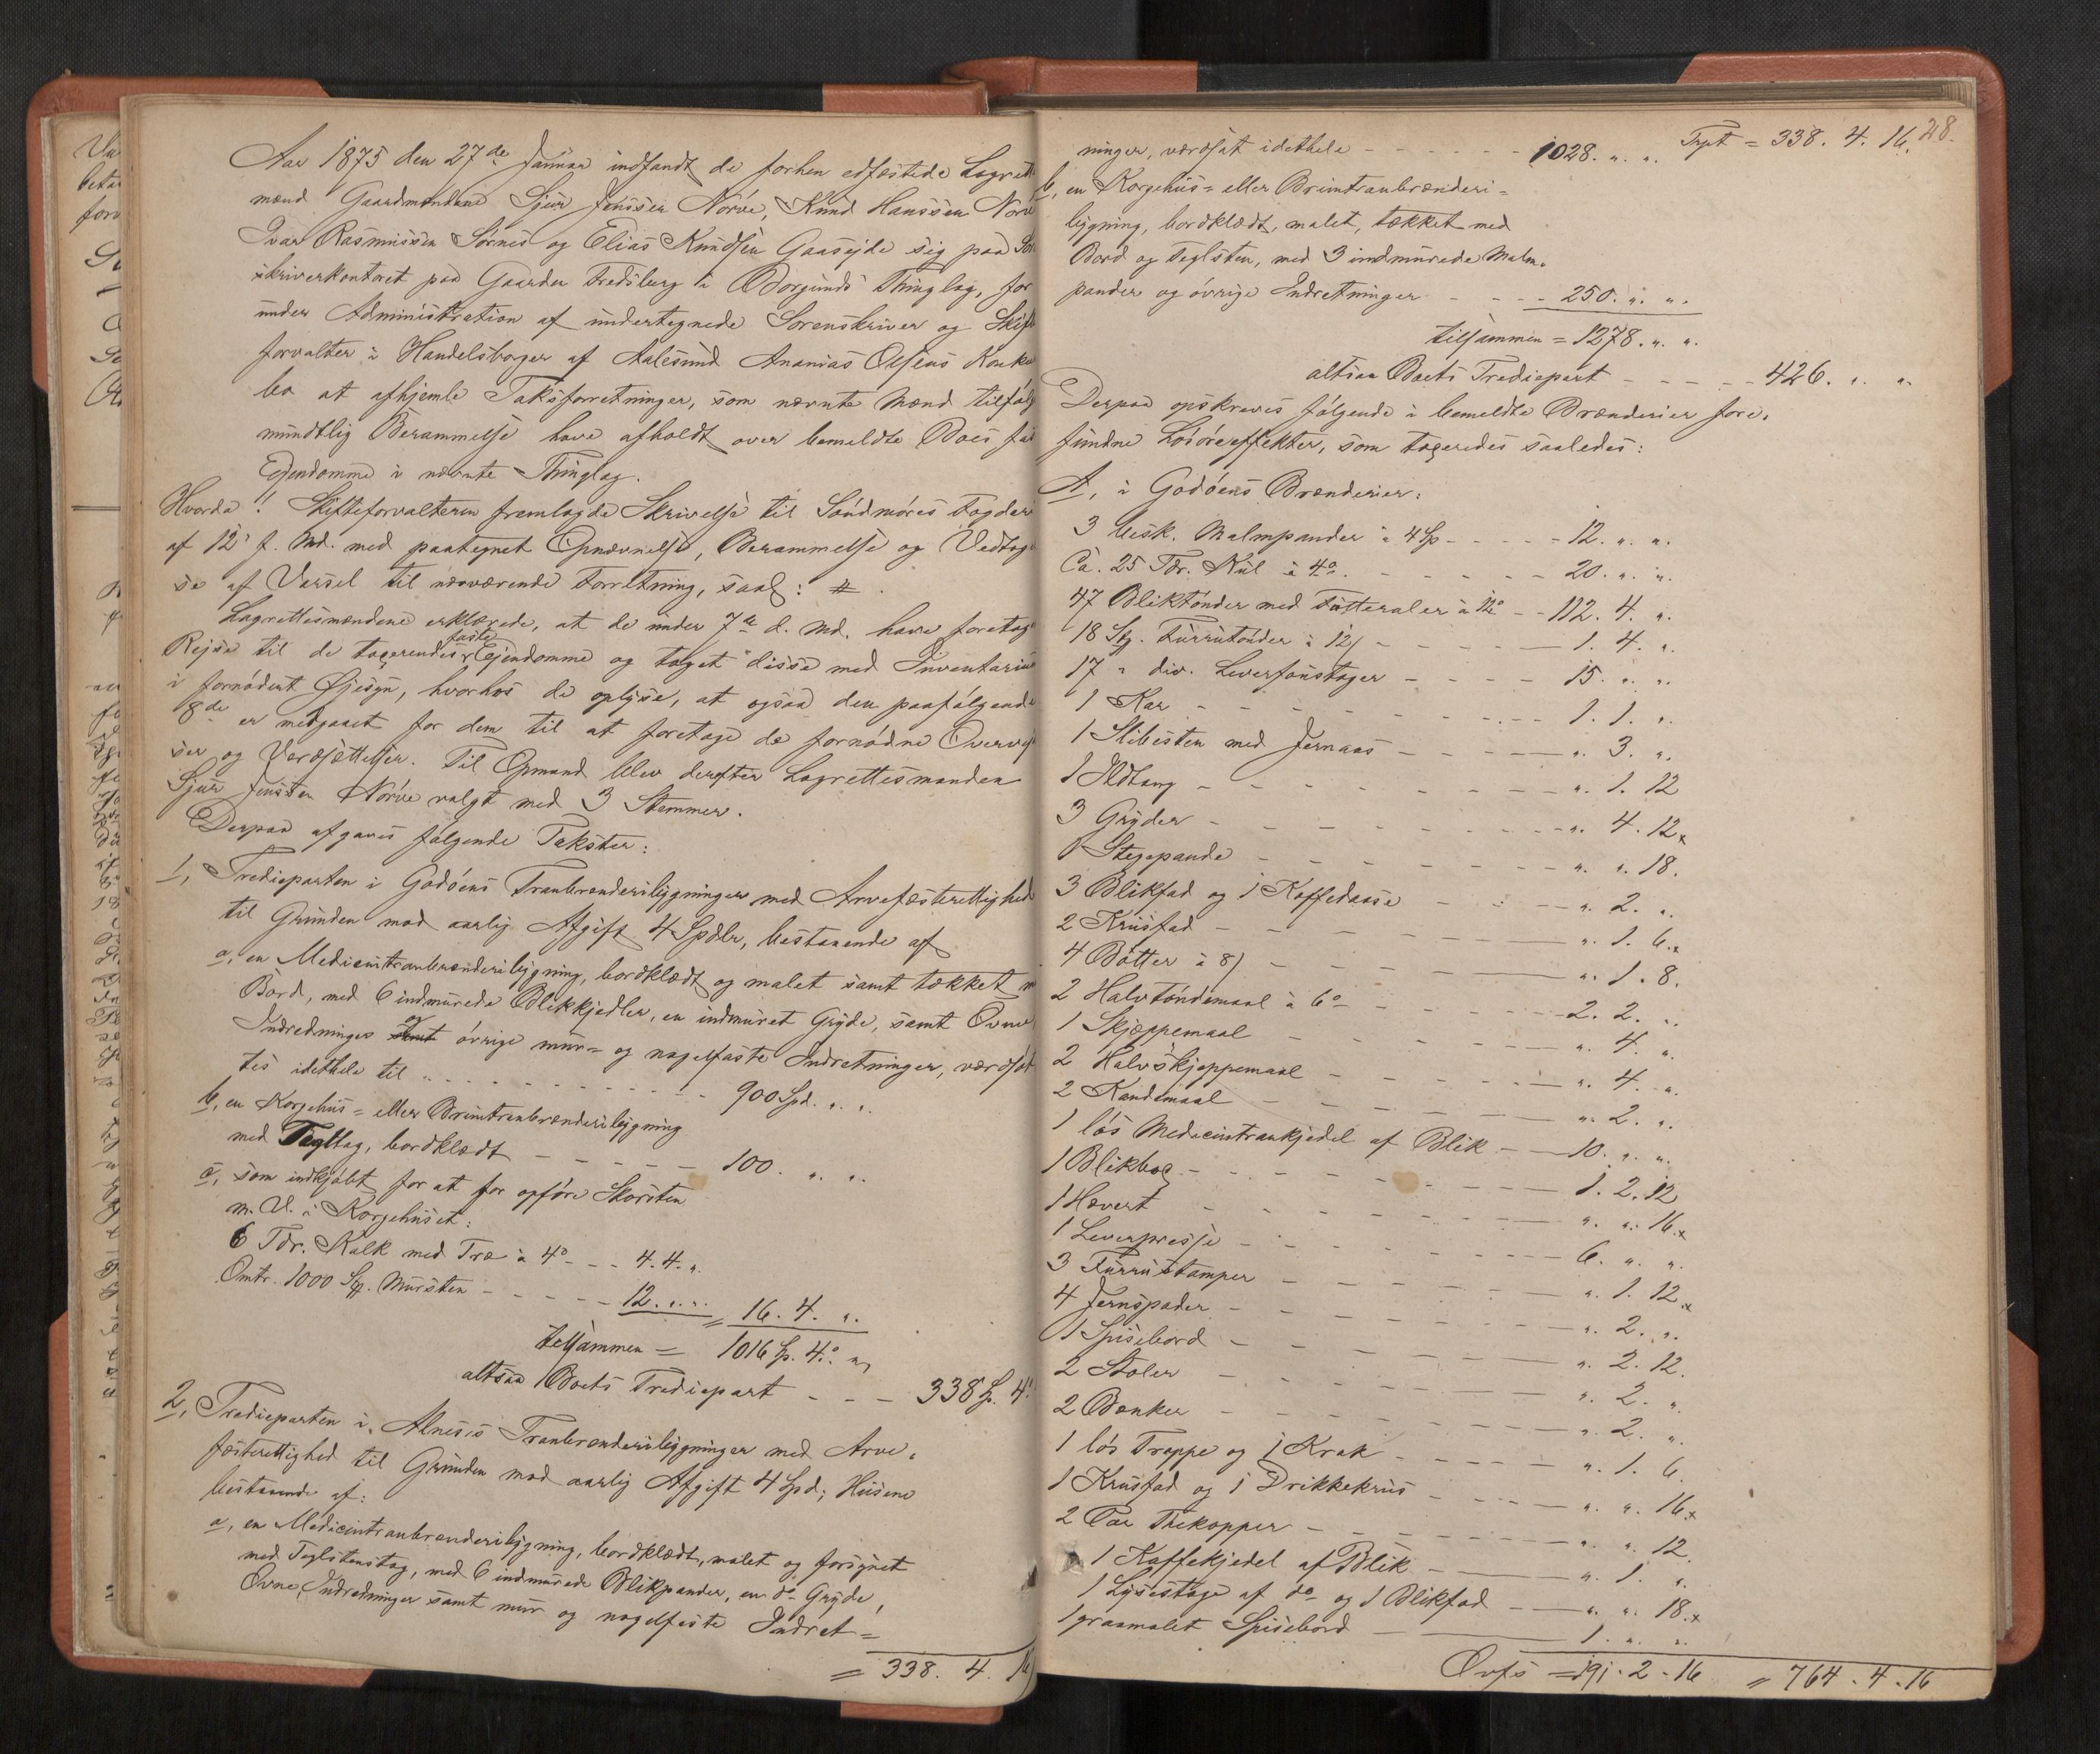 Aar 1875 den 27de Januar indfandt de forhen edfæstede Lagrett
mænd Gaardmændene Sjur Jenssen Nörve, Knud Hanssen Nörv
Ivar Rasmussen Sörnes og Elias Knudsen Gaasejde sig paa So
skriverkontoret paa Gaarden Fredsberg i Borgunds Thinglag, for
under Administration af undertegnede Sorenskriver og Skif
forvalter i Handelsborger af Aalesund Ananias Olsens Konku
bo at afhjemle Taksforretninger, som nævnte Mænd tilfölg
mundtlig Berammelse have afholdt over bemeldte Boes fa
Ejendomme i nævnte Thinglag.
Hvorda!! Skifteforvalteren fremlagde Skrivelse til Söndmöres Fogder
af 12' f. Md. med paategnet Opnævnelse, Berammelse og Vedtag
se af Varsel til nærværende Forretning, saal: #
Lagrettesmændene erklærede, at de under 7de d. Md. have foretag
Rejse til de taxerendes faste Ejendomme og taget disse med Inventarium
i fornödent Öjesyn, hvorhos de oplyse, at ogsaa den paafölgende
8de er medgaaet for dem til at foretage de fornödne Overvej
ser og Værdsættelser. Til Opmand blev derefter Lagrettesmanden
Sjur Jenssen Nörve valgt med 3 Stemmer.
Derpaa afgaves fölgende Takster:
1, Trediеparten i Godöens Tranbrænderibygninger med Arvefæsterettighed
til Grunden mod aarlig Afgift 4 Spdlr, bestaaende af
a, en Medicintranbrænderibygning, bordklædt og malet samt tækket m
Bord, med 6 indmurede Blikkjedler, en indmuret Gryde, samt Ovne
Indredninger og övrige mur= og nagelfaste Indretninger, værdsat
tes idethele til - - - 900 Spd. " "
b, en Korgehus= eller Bruntranbrænderibygning
med Tegltag, bordklædt - - - 100. " "
c, som indkjöbt for at for opföre Skorsten
m. V. i Korgehuset:
6 Tdr. Kalk med Træ à 4o - - - 4. 4. "
Omtr. 1000 Stk. Mursten - - - 12. " " = 16. 4. "
tilsammen = 1016 Sp. 4o "
altsaa Boets Trediepart - - - 338 Sp. 4
2, Trediеparten i Alnesets Tranbrænderibygninger med Arve=
fæsterettighed til Grunden mod aarlig Afgift 4 Spd; Husene
bestaaende af:
a, en Medicintranbrænderibygning, bordklædt, malet og forsynet
med Teglstenstag, med 6 indmurede Blikpander, en do Gryde,
Ovne, Indredninger samt mur og nagelfaste Indret=
= 338. 4. 16
28.
ninger, værdsat idethele - - - 1028. " " Trpt = 338. 4. 16.
b, en Korgehus= eller Bruntranbrænderi=
bygning, bordklædt, malet, tækket med
Bord og Teglsten, med 3 indmurede Malm=
pander og övrige Indretninger - - - 250. " "
tilsammen = 1278. " "
altsaa Boets Trediepart - - - 426. " "
Derpaa opskreves fölgende i bemeldte Brænderier fore=
fundne Lösöreeffekter, som taxeredes saaledes:
A, i Godöens Brænderier:
3 besk. Malmpander à 4 Sp - - - 12. " "
Ca. 25 Tdr. Kul à 4o. - - - 20. " "
47 Bliktönder med Futteraler à 12o - - 112. 4. "
18 Stk. Furrutönder à 12/ - - - 1. 4. "
17 " div. Leverfoustager - - - 15. " "
1 Kar - - - 1. 1. "
1 Slibesten med Jernaas - - - " 3. "
1 Ildtang - - - " 1. 12
3 Gryder - - - " 4. 12x
1 Stegepande - - - " " 18.
3 Blikfad og 1 Kaffedaase - - - " 2. "
2 Krusfad - - - " 1. 6.x
4 Bötter à 8/ - - - " 1. 8.
2 Halvtöndemaal à 6o - - - 2. 2. "
1 Skjæppemaal - - - " 4. "
2 Halvskjæppemaal - - - " 4. "
2 Kandemaal - - - " 2. "
1 lös Medicintrankjedel af Blik - - 10. " "
1 Blikbog - - - 1. 2. 12
1 Hævert - - - " " 16.x
1 Leverpresse - - - 6. " "
3 Furrustamper - - - " 1. 12.x
4 Jernspader - - - " 2. "
1 Spisebord - - - " 2. 12.
2 Stoler - - - " 2. "
2 Bænker - - - " 2. "
1 lös Trappe og 1 Krak - - - " 1. 6.
1 Krusfad og 1 Drikkekrus - - - " " 16x
2 Par Thekopper - - - " " 12.
1 Kaffekjedel af Blik - - - " 1. "
1 Lysestage af do og 1 Blikfad - - " " 18.x
1 graamalet Spisebord - - - 1. " "
Ovfs = 191 - 2 - 16 = 764 - 4 - 16